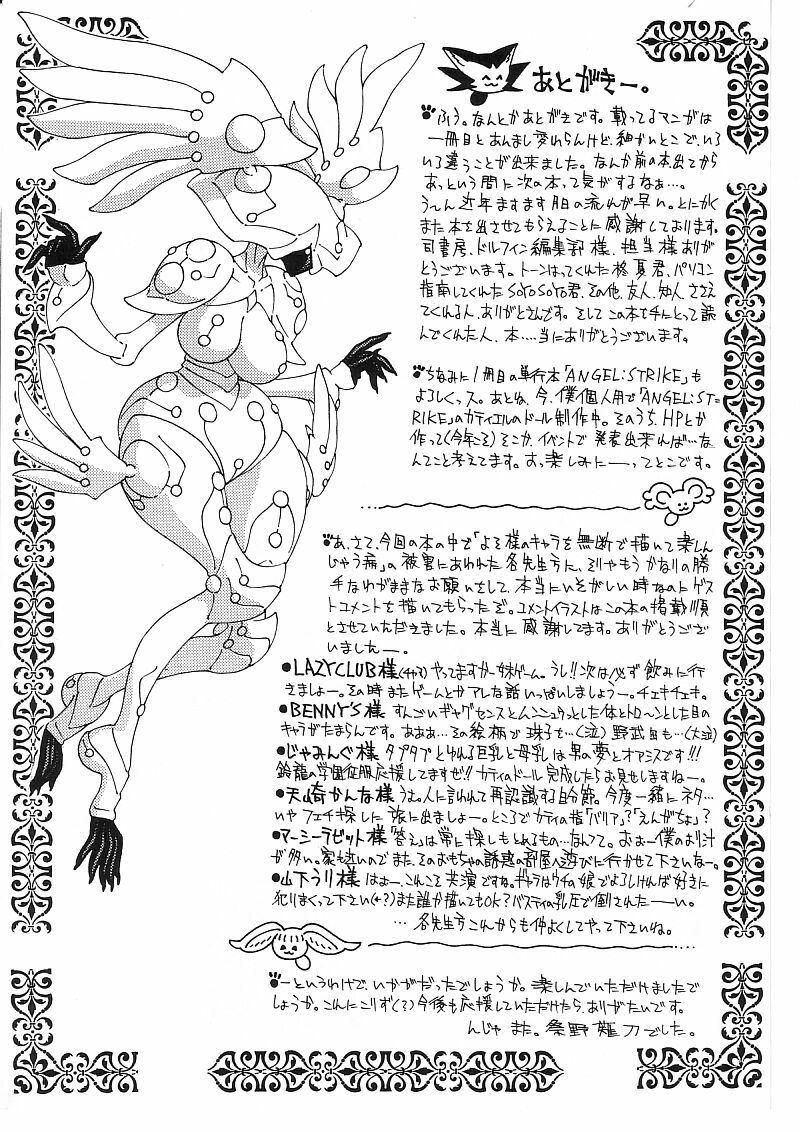 あとがきー。
ふぅ。なんとかあとがきです。載ってるマンガは
一冊目とあんまし変わらんけど、細かいとこで、いろ
いろ違うことが出来ました。なんか前の本出てから
あっという間に次の本って気がするなぁ…。
う〜ん近年ますます月日の流れが早い。とにかく
また本を出させてもらえることに感謝しております。
司書房、ドルフィン編集部様、担当様ありが
とうございます。トーンはってくれた柊夏君、パソコン
指南してくれたSOYOSOYO君、その他、友人、知人、ささえ
てくれる人、ありがとさんです。そしてこの本を手にとって読
んでくれた人、本….当にありがとうございます。
ちなみに1冊目の単行本「ANGEL:STRIKE」も
よろしくっス。あとね、今、僕個人用で「ANGEL:ST=
RIKE」のカティエルのドール制作中。そのうち、HPとか
作って(今年こそ)そこか、イベントで発表出来れば…な
んてこと考えてます。お楽しみにー―ってとこです。
あ、さて、今回の本の中で「よそ様のキャラを無断で描いて楽しん
じゃう病」の被害にあわれた各先生方に、そりゃもうかなりの勝
手なわがままなお願いをして、本当にいそがしい時なのにゲス
トコメントを描いてもらったぞ。コメントイラストはこの本の掲載順
とさせていただきました。本当に感謝してます。ありがとうござ
いましたー。
●LAZYCLUB様 やってますかー妹ゲーム。うし!!次は必ず飲みに行
きましょー。その時またゲームとかアレな話いっぱいしましょうー。チェキチェキ。
●BENNY'S様 すんごいギャグセンスとムンニュウっとした体とトロ〜ンとした目の
キャラがたまらんです。あああ…その絵柄で珠子を…(泣)野武日も…(大泣)
●じゃみんぐ様 タプタプとゆれる巨乳と母乳は男の夢とオアシスです!!!
鈴龍の学園征服応援してますぜ!! カティのドール完成したらお見せしますねー。
●天山奇かんな様 うむ。人に言われて再認識する自分節。今度一緒にネタ…
いやフェチ探しに旅に出ましょー。ところでカティの指「バリア」?「えんがちょ」?
●マーシーラビット様 「答え」は常に探しもとめるもの…なんつて。おおー僕のお汁
が多い。家も近いのでまた、そのおもちゃの誘惑の部屋へ遊びに行かせて下さいなー。
●山下うり様 はぉー、これこそ共演ですね。ギャラはウチの娘でよろしければ好きに
犯りまくって下さい(+?)また誰か描いてもOK?バスティの乳圧で倒されたーーい。
…各先生方これからも仲よくしてやって下さいね。
ーというわけで、いかがだったでしょうか。楽しんでいただけましたで
しょうか。これにこりず(?)今後も応援していただけたら、ありがたいです。
んじゃ また。桑野難刀でした。